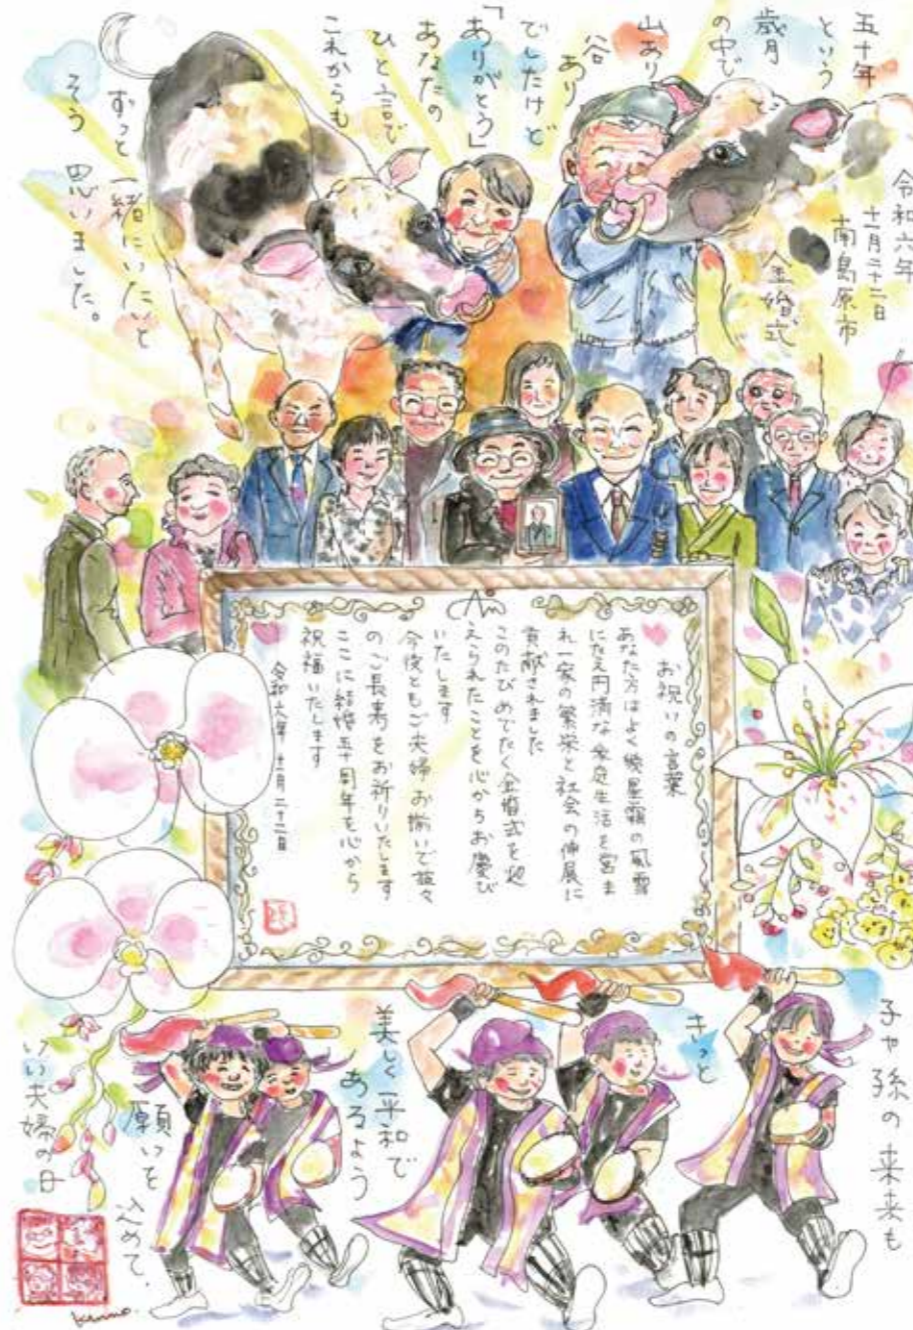 令和六年
十一月二十二日
南島原市
金婚式
五十年
という
歳月
の中で
山あり
谷
あり
でしたけど
「ありがとう」
あなたの
ひと言で
これからも
ずっと一緒にいたいと
そう思いました。
お祝いの言葉
あなた方はよく幾星霜の風雪
にたえ円満な家庭生活を営ま
れ一家の繁栄と社会の伸展に
貢献されました
このたびめでたく金婚式を迎
えられたことを心からお慶び
いたします
今後ともご夫婦お揃いで益々
のご長寿をお祈りいたします
ここに結婚五十周年を心から
祝福いたします
令和六年十一月二十二日
子や孫の未来も
きっと
美しく平和で
あるよう
願いを
込めて、
いい夫婦の日